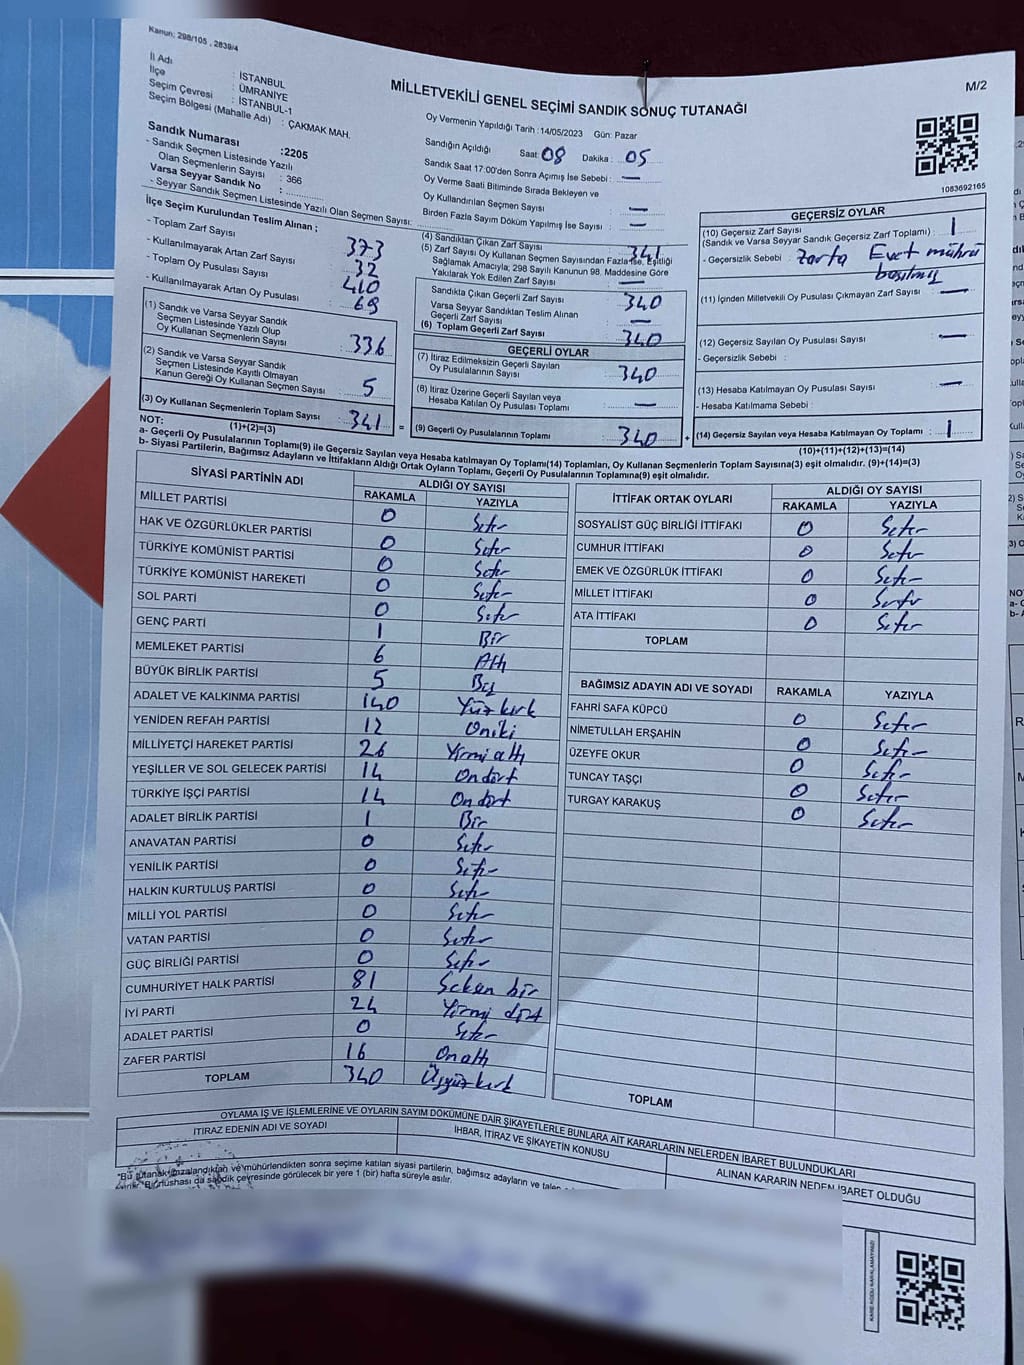 Kanun; 298/105 , 2839/4
İl Adı : İSTANBUL
İlçe : ÜMRANİYE
Seçim Çevresi : İSTANBUL-1
Seçim Bölgesi (Mahalle Adı) : ÇAKMAK MAH.
MİLLETVEKİLİ GENEL SEÇİMİ SANDIK SONUÇ TUTANAĞI
M/2
Oy Vermenin Yapıldığı Tarih : 14/05/2023 Gün: Pazar
Sandığın Açıldığı Saat 08 Dakika : 05
Sandık Saat 17:00'den Sonra Açılmış İse Sebebi : —
Oy Verme Saati Bitiminde Sırada Bekleyen ve
Oy Kullandırılan Seçmen Sayısı —
Birden Fazla Sayım Döküm Yapılmış İse Sayısı : —
1083692165
Sandık Numarası :2205
- Sandık Seçmen Listesinde Yazılı
Olan Seçmenlerin Sayısı : 366
Varsa Seyyar Sandık No :
- Seyyar Sandık Seçmen Listesinde Yazılı Olan Seçmen Sayısı:
İlçe Seçim Kurulundan Teslim Alınan ;
- Toplam Zarf Sayısı 373
- Kullanılmayarak Artan Zarf Sayısı 32
- Toplam Oy Pusulası Sayısı 410
- Kullanılmayarak Artan Oy Pusulası : 69
(1) Sandık ve Varsa Seyyar Sandık
Seçmen Listesinde Yazılı Olup
Oy Kullanan Seçmenlerin Sayısı : 336
(2) Sandık ve Varsa Seyyar Sandık
Seçmen Listesinde Kayıtlı Olmayan
Kanun Gereği Oy Kullanan Seçmen Sayısı : 5
(3) Oy Kullanan Seçmenlerin Toplam Sayısı : 341
(1)+(2)=(3)
(4) Sandıktan Çıkan Zarf Sayısı 341
(5) Zarf Sayısı Oy Kullanan Seçmen Sayısından Fazla İse, Eşitliği
Sağlamak Amacıyla; 298 Sayılı Kanunun 98. Maddesine Göre
Yakılarak Yok Edilen Zarf Sayısı : —
Sandıkta Çıkan Geçerli Zarf Sayısı 340
Varsa Seyyar Sandıktan Teslim Alınan
Geçerli Zarf Sayısı : —
(6) Toplam Geçerli Zarf Sayısı 340
GEÇERLİ OYLAR
(7) İtiraz Edilmeksizin Geçerli Sayılan
Oy Pusulalarının Sayısı : 340
(8) İtiraz Üzerine Geçerli Sayılan veya
Hesaba Katılan Oy Pusulası Toplamı : —
= (9) Geçerli Oy Pusulalarının Toplamı 340
GEÇERSİZ OYLAR
(10) Geçersiz Zarf Sayısı
(Sandık ve Varsa Seyyar Sandık Geçersiz Zarf Toplamı) : 1
- Geçersizlik Sebebi : zarfa Evet mührü
basılmış
(11) İçinden Milletvekili Oy Pusulası Çıkmayan Zarf Sayısı : —
(12) Geçersiz Sayılan Oy Pusulası Sayısı : —
- Geçersizlik Sebebi :
(13) Hesaba Katılmayan Oy Pusulası Sayısı : —
- Hesaba Katılmama Sebebi :
+ (14) Geçersiz Sayılan veya Hesaba Katılmayan Oy Toplamı : 1
(10)+(11)+(12)+(13)=(14)
NOT:
a- Geçerli Oy Pusulalarının Toplamı(9) ile Geçersiz Sayılan veya Hesaba katılmayan Oy Toplamı(14) Toplamları, Oy Kullanan Seçmenlerin Toplam Sayısına(3) eşit olmalıdır. (9)+(14)=(3)
b- Siyasi Partilerin, Bağımsız Adayların ve İttifakların Aldığı Ortak Oyların Toplamı, Geçerli Oy Pusulalarının Toplamına(9) eşit olmalıdır.
SİYASİ PARTİNİN ADI ALDIĞI OY SAYISI
RAKAMLA YAZIYLA
MİLLET PARTİSİ 0 Sıfır
HAK VE ÖZGÜRLÜKLER PARTİSİ 0 Sıfır
TÜRKİYE KOMÜNİST PARTİSİ 0 Sıfır
TÜRKİYE KOMÜNİST HAREKETİ 0 Sıfır
SOL PARTİ 0 Sıfır
GENÇ PARTİ 1 Bir
MEMLEKET PARTİSİ 6 Altı
BÜYÜK BİRLİK PARTİSİ 5 Beş
ADALET VE KALKINMA PARTİSİ 140 Yüz kırk
YENİDEN REFAH PARTİSİ 12 Oniki
MİLLİYETÇİ HAREKET PARTİSİ 26 Yirmi altı
YEŞİLLER VE SOL GELECEK PARTİSİ 14 On dört
TÜRKİYE İŞÇİ PARTİSİ 14 On dört
ADALET BİRLİK PARTİSİ 1 Bir
ANAVATAN PARTİSİ 0 Sıfır
YENİLİK PARTİSİ 0 Sıfır
HALKIN KURTULUŞ PARTİSİ 0 Sıfır
MİLLİ YOL PARTİSİ 0 Sıfır
VATAN PARTİSİ 0 Sıfır
GÜÇ BİRLİĞİ PARTİSİ 0 Sıfır
CUMHURİYET HALK PARTİSİ 81 Seksen bir
İYİ PARTİ 24 Yirmi dört
ADALET PARTİSİ 0 Sıfır
ZAFER PARTİSİ 16 On altı
TOPLAM 340 Üçyüz kırk
İTTİFAK ORTAK OYLARI ALDIĞI OY SAYISI
RAKAMLA YAZIYLA
SOSYALİST GÜÇ BİRLİĞİ İTTİFAKI 0 Sıfır
CUMHUR İTTİFAKI 0 Sıfır
EMEK VE ÖZGÜRLÜK İTTİFAKI 0 Sıfır
MİLLET İTTİFAKI 0 Sıfır
ATA İTTİFAKI 0 Sıfır
TOPLAM
BAĞIMSIZ ADAYIN ADI VE SOYADI RAKAMLA YAZIYLA
FAHRİ SAFA KÜPCÜ 0 Sıfır
NİMETULLAH ERŞAHİN 0 Sıfır
ÜZEYFE OKUR 0 Sıfır
TUNCAY TAŞÇI 0 Sıfır
TURGAY KARAKUŞ 0 Sıfır
TOPLAM
OYLAMA İŞ VE İŞLEMLERİNE VE OYLARIN SAYIM DÖKÜMÜNE DAİR ŞİKAYETLERLE BUNLARA AİT KARARLARIN NELERDEN İBARET BULUNDUKLARI
İTİRAZ EDENİN ADI VE SOYADI İHBAR, İTİRAZ VE ŞİKAYETİN KONUSU ALINAN KARARIN NEDEN İBARET OLDUĞU
"Bu tutanak imzalandıktan ve mühürlendikten sonra seçime katılan siyasi partilerin, bağımsız adayların ve talep
Bir nüshası da sandık çevresinde görülecek bir yere 1 (bir) hafta süreyle asılır.
KARE KODU KARALAMAYINIZ!